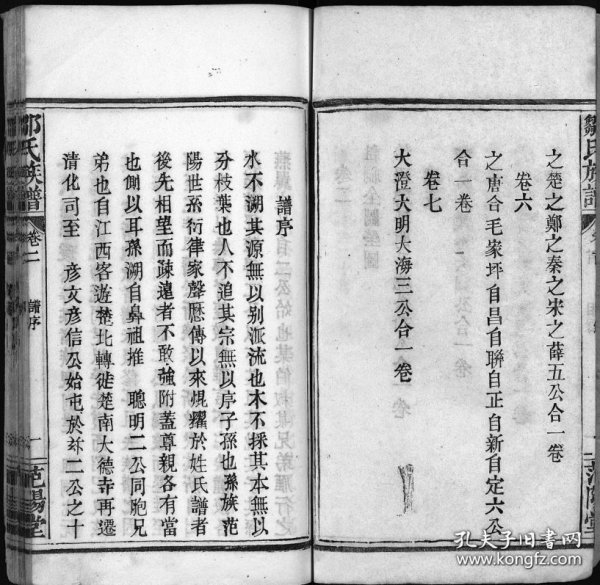 之楚之鄭之秦之宋之薛五公合一卷
卷六
之唐合毛家坪自昌自聯自正自新自定六公
合一卷
卷七
大澄大明大海三公合一卷
鄒氏族譜
鄒氏族譜
卷二
譜序
一
范陽堂
譜序
水不溯其源無以别派流也木不採其本無以
分枝葉也人不追其宗無以序子孫也為族范
陽世系衍律家聲歷傳以來焜耀於姓氏譜者
後先相望而疎遠者不敢強附蓋尊親各有當
也側以耳孫溯自鼻祖推 聰明二公同胞兄
弟也自江西客遊楚北轉徙楚南大德寺再遷
清化司至 彦文彦信公始屯於茶二公之十
孔夫子旧书网
www.kongfz.com